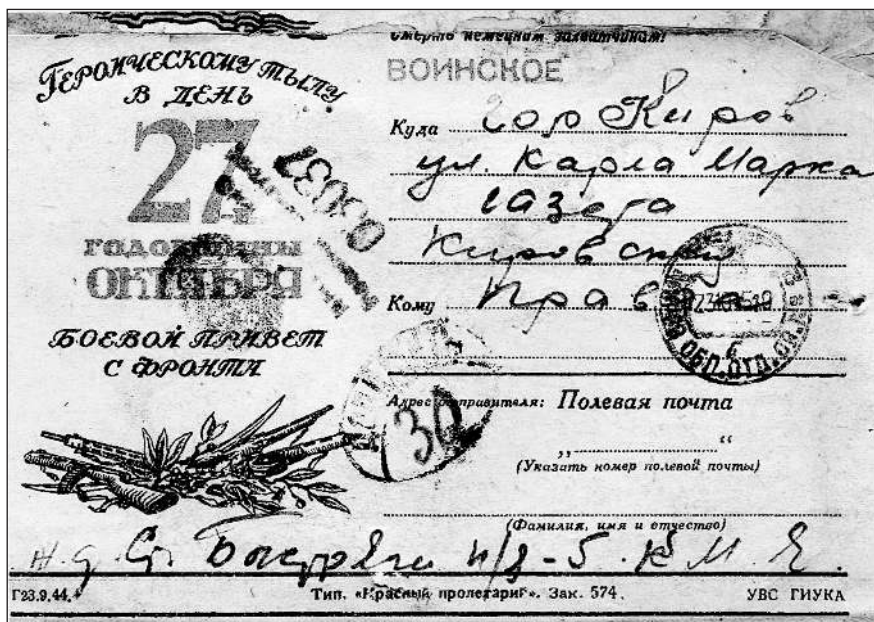 Смерть немецким захватчикам!
ГЕРОИЧЕСКОМУ ТЫЛУ
В ДЕНЬ
27
ГОДОВЩИНЫ
ОКТЯБРЯ
БОЕВОЙ ПРИВЕТ
С ФРОНТА
ВОИНСКОЕ
Куда гор Киров
ул. Карла Маркса
газета
Кировская
Кому Прав
Адрес отправителя: Полевая почта
„ “
(Указать номер полевой почты)
(Фамилия, имя и отчество)
ж.д. Ст. Быстряги п/я-5. К. М. Е.
Г23.9.44.
Тип. «Красный пролетарий». Зак. 574.
УВС ГИУКА
03037
30
ОБЛ.ОТД.СВ.